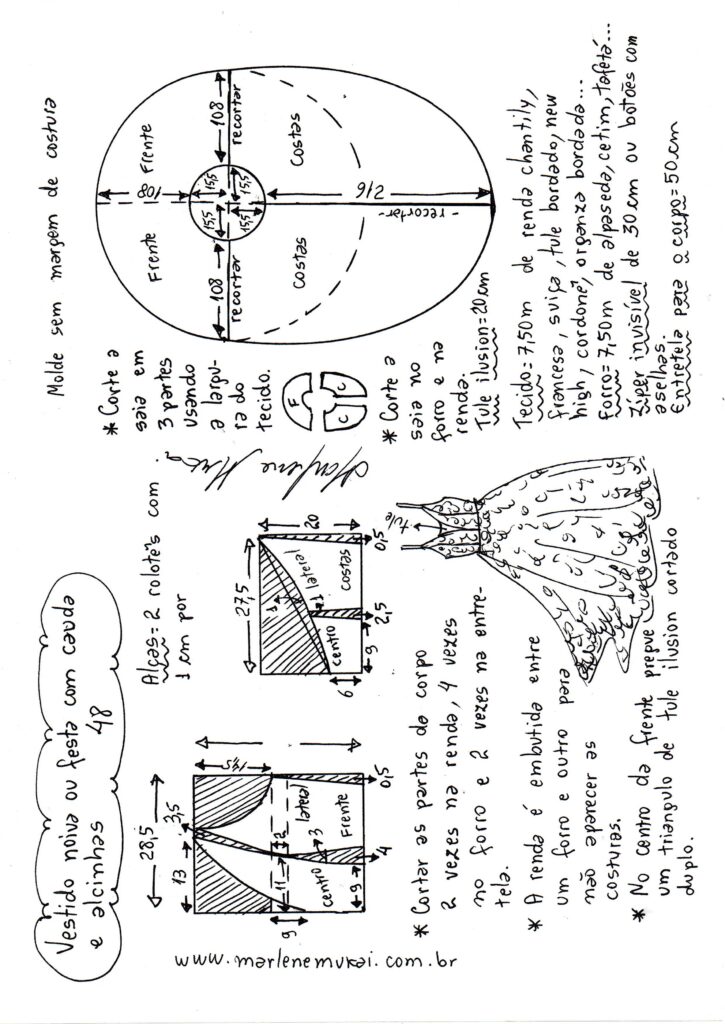 Vestido noiva ou festa com cauda
e alcinhas 48
Molde sem margem de costura
28,5
3,5
13
2
11
3
9
9
4
0,5
lateral
centro
Frente
www.marlenemukai.com.br
Alças = 2 rolotês com
1 cm por
27,5
20
1
1
lateral
centro
costas
6
9
2,5
0,5
* Corte a
saia em
3 partes
usando
a largu-
ra do
tecido.
F
C
C
* Corte a
saia no
forro e na
renda.
Tule ilusion = 20 cm
Frente
Frente
108
108
108
15,5
15,5
15,5
15,5
recortar
recortar
Costas
Costas
216
-recortar-
* Cortar as partes do corpo
2 vezes na renda, 4 vezes
no forro e 2 vezes na entre-
tela.
* A renda é embutida entre
um forro e outro para
não aparecer as
costuras.
* No centro da frente prepue
um triângulo de tule ilusion cortado
duplo.
tule
Tecido = 7,50 m de renda chantily,
francesa, suiça, tule bordado, new
high, cordonê, organza bordada...
Forro = 7,50 m de alpaseda, cetim, tafetá...
Zíper invisível de 30 cm ou botões com
aselhas.
Entretela para o corpo = 50 cm